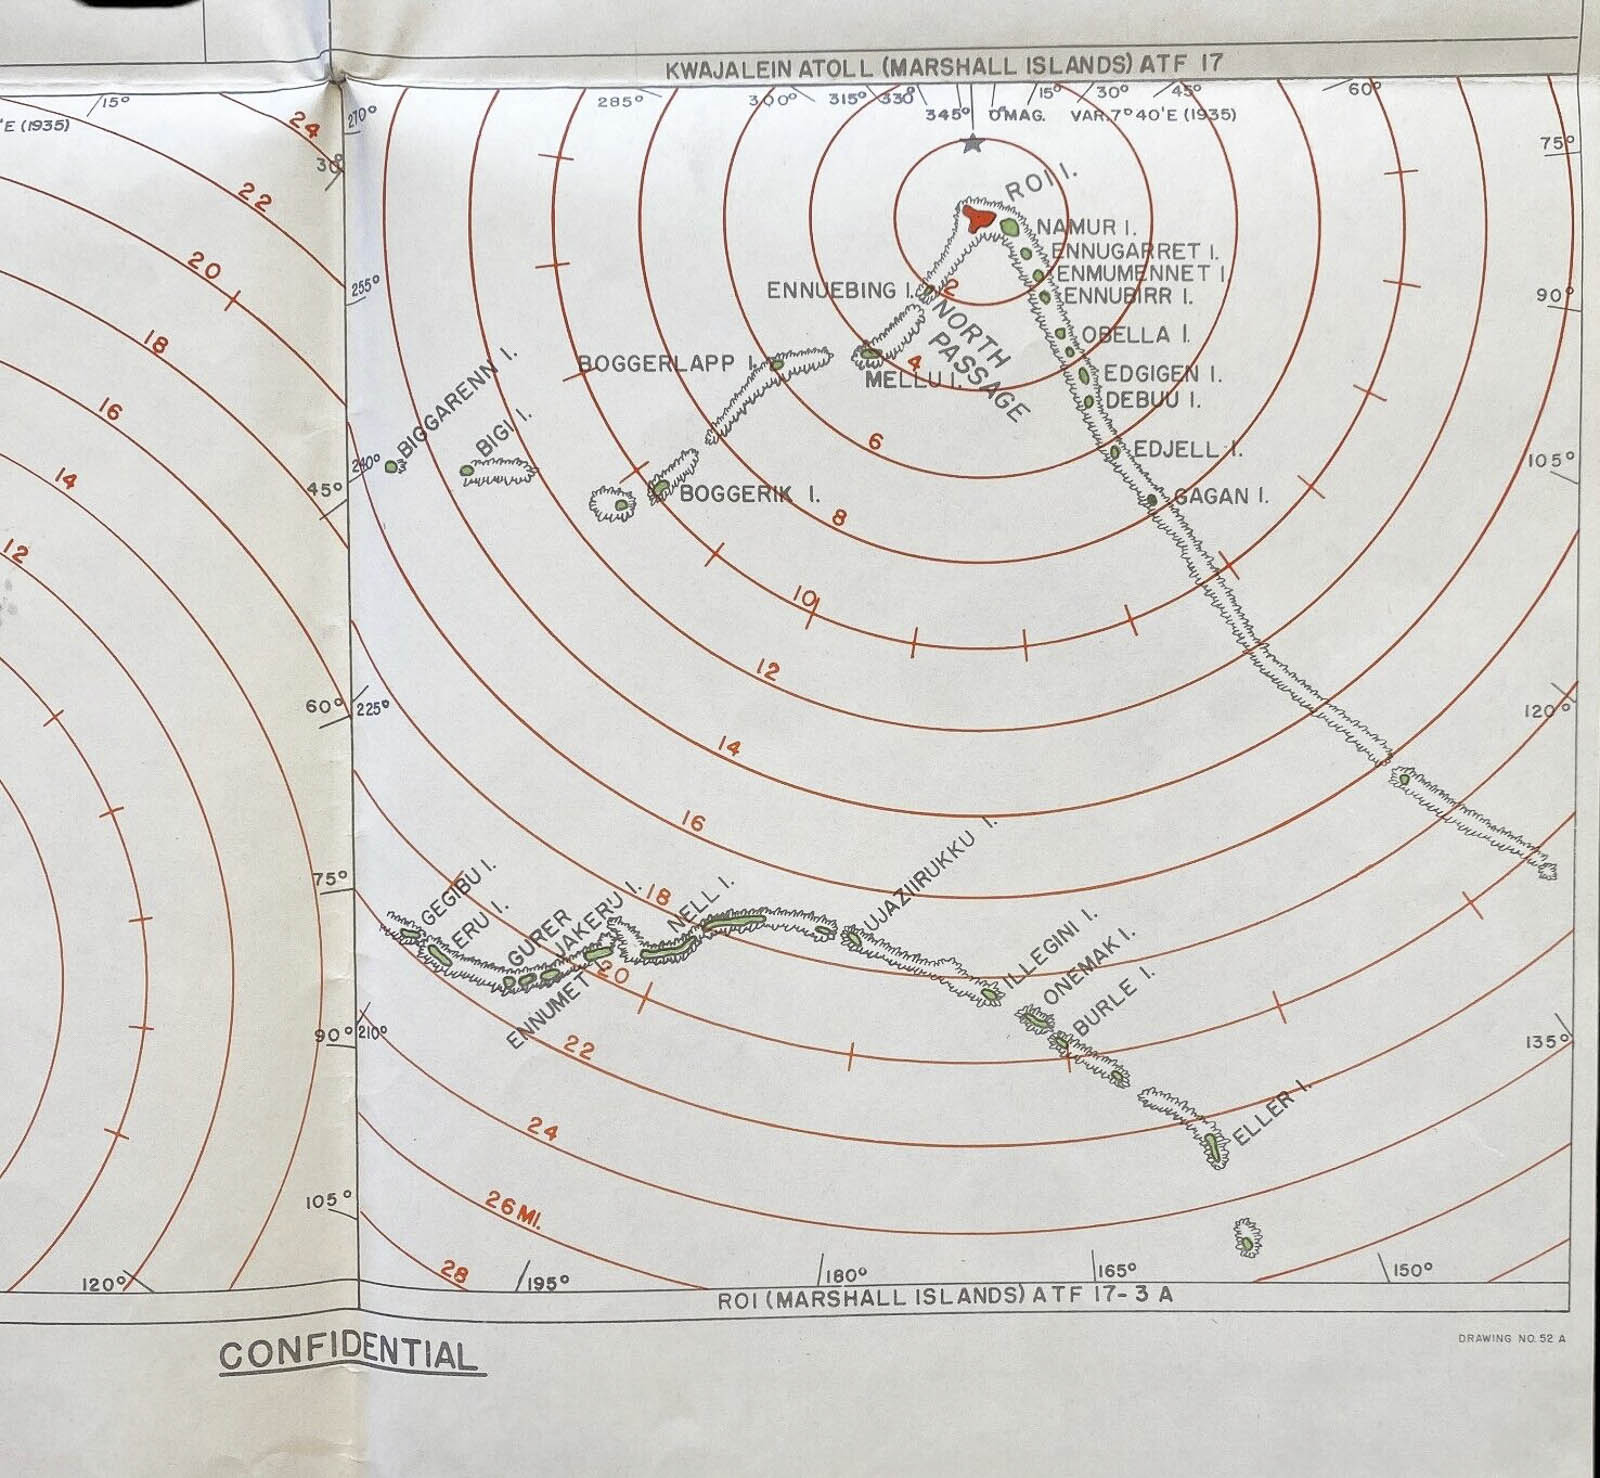 KWAJALEIN ATOLL (MARSHALL ISLANDS) ATF 17
15°
'E (1935)
24
22
20
18
16
14
12
30°
45°
60°
75°
90°
105°
120°
270°
255°
240°
225°
210°
285°
300°
315°
330°
345°
0° MAG.
15°
30°
45°
60°
VAR. 7° 40' E (1935)
75°
90°
105°
120°
135°
ROI I.
NAMUR I.
ENNUGARRET I.
ENMUMENNET I.
ENNUEBING I.
2
ENNUBIRR I.
NORTH
PASSAGE
OBELLA I.
BOGGERLAPP I.
4
MELLU I.
EDGIGEN I.
DEBUU I.
BIGGARENN I.
BIGI I.
6
EDJELL I.
BOGGERIK I.
GAGAN I.
8
10
12
14
16
18
20
22
24
26 MI.
28
GEGIBU I.
ERU I.
GURER
JAKERU I.
ENNUMET I.
NELL I.
UJAZIIRUKKU I.
ILLEGINI I.
ONEMAK I.
BURLE I.
ELLER I.
195°
180°
165°
150°
ROI (MARSHALL ISLANDS) ATF 17-3 A
DRAWING NO. 52 A
CONFIDENTIAL